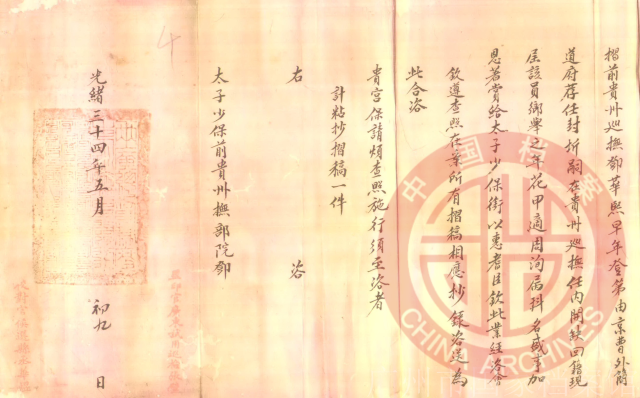 摺前貴州巡撫鄧華熙早年登第由京曹外簡
道府荐任封圻嗣在貴州巡撫任內開缺回籍現
屆該員鄉舉之年花甲適周洵屬科名盛事加
恩著賞給太子少保銜以惠耆臣欽此業經咨會
欽遵查照在案所有摺稿相應抄錄咨送為
此合咨
貴宮保請煩查照施行須至咨者
計粘抄摺稿一件
右咨
太子少保前貴州撫部院鄧
光緒三十四年五月初九日
4
中国档案
CHINA ARCHIVES